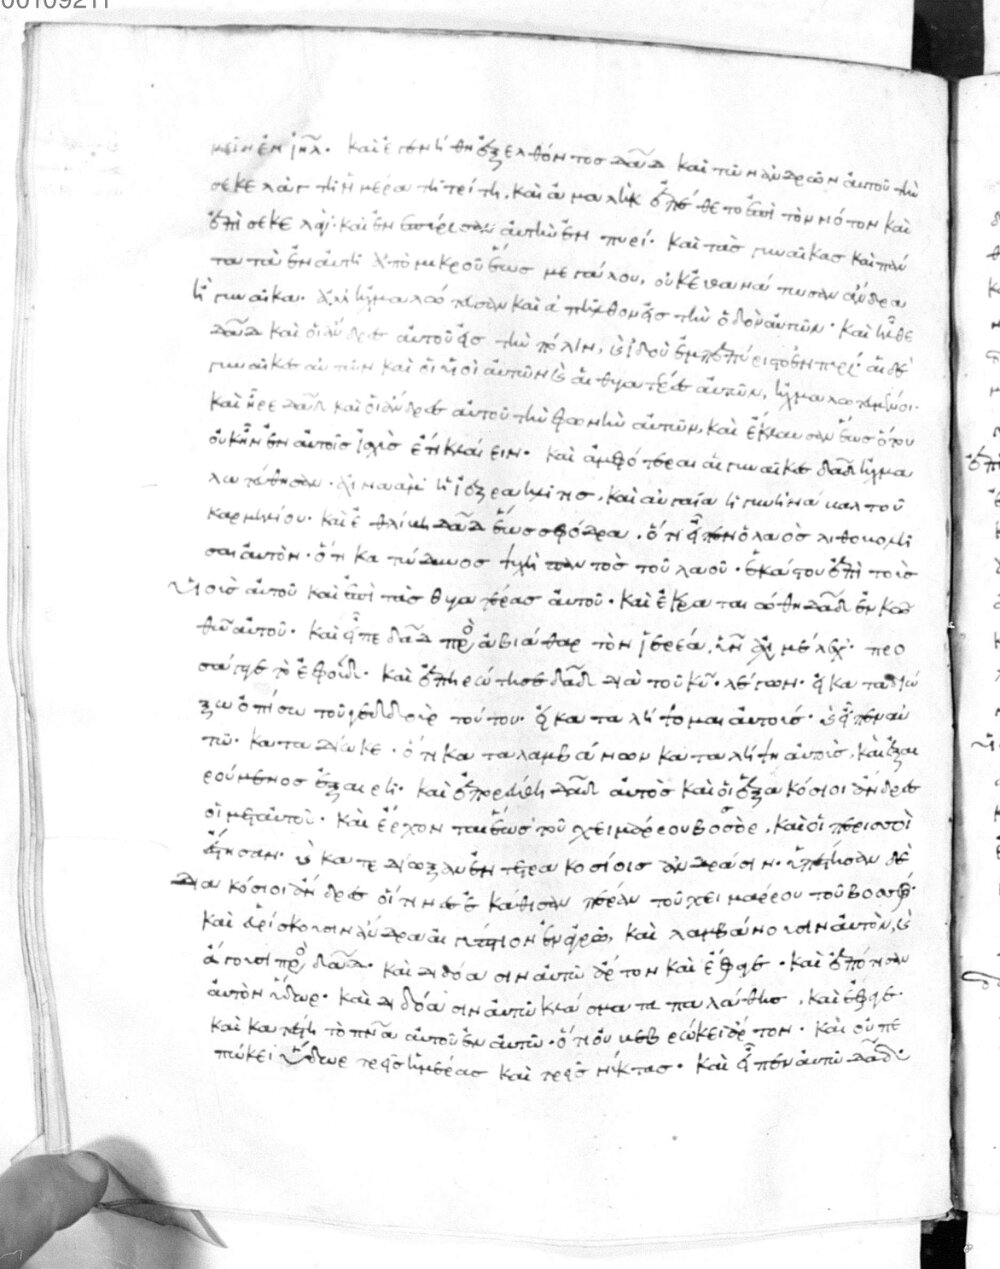 00109211
μεῖν ἐν ἰῆλ. καὶ ἐγενήθη ἐξελθόντος δαδ καὶ τῶν ἀνδρῶν αὐτοῦ τὴν
σεκελὰγ τῇ ἡμέρα τῇ τρίτη, καὶ ἀμαλὴκ ἐπέθετο ἐπὶ τὸν νότον καὶ
ἐπὶ σεκελάγ· καὶ ἐνεπύρισαν αὐτὴν ἐν πυρί. καὶ τὰς γυναῖκας καὶ πάν
τα τὰ ἐν αὐτῆ ἀπὸ μικροῦ ἕως μεγάλου, οὐκ ἐθανάτωσαν ἄνδρα
ἢ γυναῖκα. ἀλλ ἠχμαλώτευσαν καὶ ἀπῆλθον εἰς τὴν ὁδὸν αὐτῶν. καὶ ἦλθε
δαδ καὶ οἱ ἄνδρες αὐτοῦ εἰς τὴν πόλιν, καὶ ἰδοὺ ἐμπεπύριστο ἐν πυρί· αἱ δὲ
γυναῖκες αὐτῶν καὶ οἱ υἱοὶ αὐτῶν καὶ αἱ θυγατέρες αὐτῶν, ἠχμαλωτευμένοι.
καὶ ἦρε δαδ καὶ οἱ ἄνδρες αὐτοῦ τὴν φωνὴν αὐτῶν, καὶ ἔκλαυσαν ἕως ὅτου
οὐκ ἦν ἐν αὐτοῖς ἰσχὺς ἔτι κλαίειν. καὶ ἀμφότεραι αἱ γυναῖκες δαδ ἠχμα
λωτεύθησαν. ἀχιναὰμ ἡ ἰεζραηλῖτις, καὶ ἀβιγαία ἡ γυνὴ νάβαλ τοῦ
καρμηλίου. καὶ ἐθλίβη δαδ ἕως σφόδρα. ὅτι εἶπεν ὁ λαὸς λιθοβολῆ
σαι αὐτόν. ὅτι κατώδυνος ψυχὴ παντὸς τοῦ λαοῦ. ἑκάστου ἐπὶ τοὺς
υἱοὺς αὐτοῦ καὶ ἐπὶ τὰς θυγατέρας αὐτοῦ. καὶ ἐκραταιώθη δαδ ἐν κω
θω αὐτοῦ. καὶ εἶπε δαδ πρὸς ἀβιάθαρ τὸν ἱερέα, υν ἀχιμέλεχ. προ
σάγαγε τὸ ἐφούδ. καὶ ἐπηρώτησε δαδ διὰ τοῦ κυ λέγων. εἰ καταδιώ
ξω ὀπίσω τοῦ γεδδοὺρ τούτου. εἰ καταλήψομαι αὐτούς. καὶ εἶπεν αὐ
τῶ. καταδίωκε. ὅτι καταλαμβάνων καταλήψη αὐτοὺς, καὶ ἐξαι
ρούμενος ἐξαιρῆ. καὶ ἐπορεύθη δαδ αὐτὸς καὶ οἱ ἑξακόσιοι ἄνδρες
οἱ μετ αὐτοῦ. καὶ ἔρχονται ἕως τοῦ χειμάρρου βοσὸρ, καὶ οἱ περισσοὶ
ἔστησαν. καὶ κατεδίωξαν ἐν τετρακοσίοις ἀνδράσιν. ὑπέστησαν δὲ
διακόσιοι ἄνδρες οἵτινες ἐκάθισαν πέραν τοῦ χειμάρρου τοῦ βοσόρ.
καὶ εὑρίσκουσιν ἄνδρα αἰγύπτιον ἐν ἀγρῶ, καὶ λαμβάνουσιν αὐτὸν, καὶ
ἄγουσι πρὸς δαδ. καὶ διδόασιν αὐτῶ ἄρτον καὶ ἔφαγε. καὶ ἐπότισαν
αὐτὸν ὕδωρ. καὶ διδόασιν αὐτῶ κλάσματα παλάθης, καὶ ἔφαγε.
καὶ κατέστη τὸ πνα αὐτοῦ ἐν αὐτῶ. ὅτι οὐ βεβρώκει ἄρτον. καὶ οὐ πε
πώκει ὕδωρ τρεῖς ἡμέρας καὶ τρεῖς νύκτας. καὶ εἶπεν αὐτῶ δαδ.